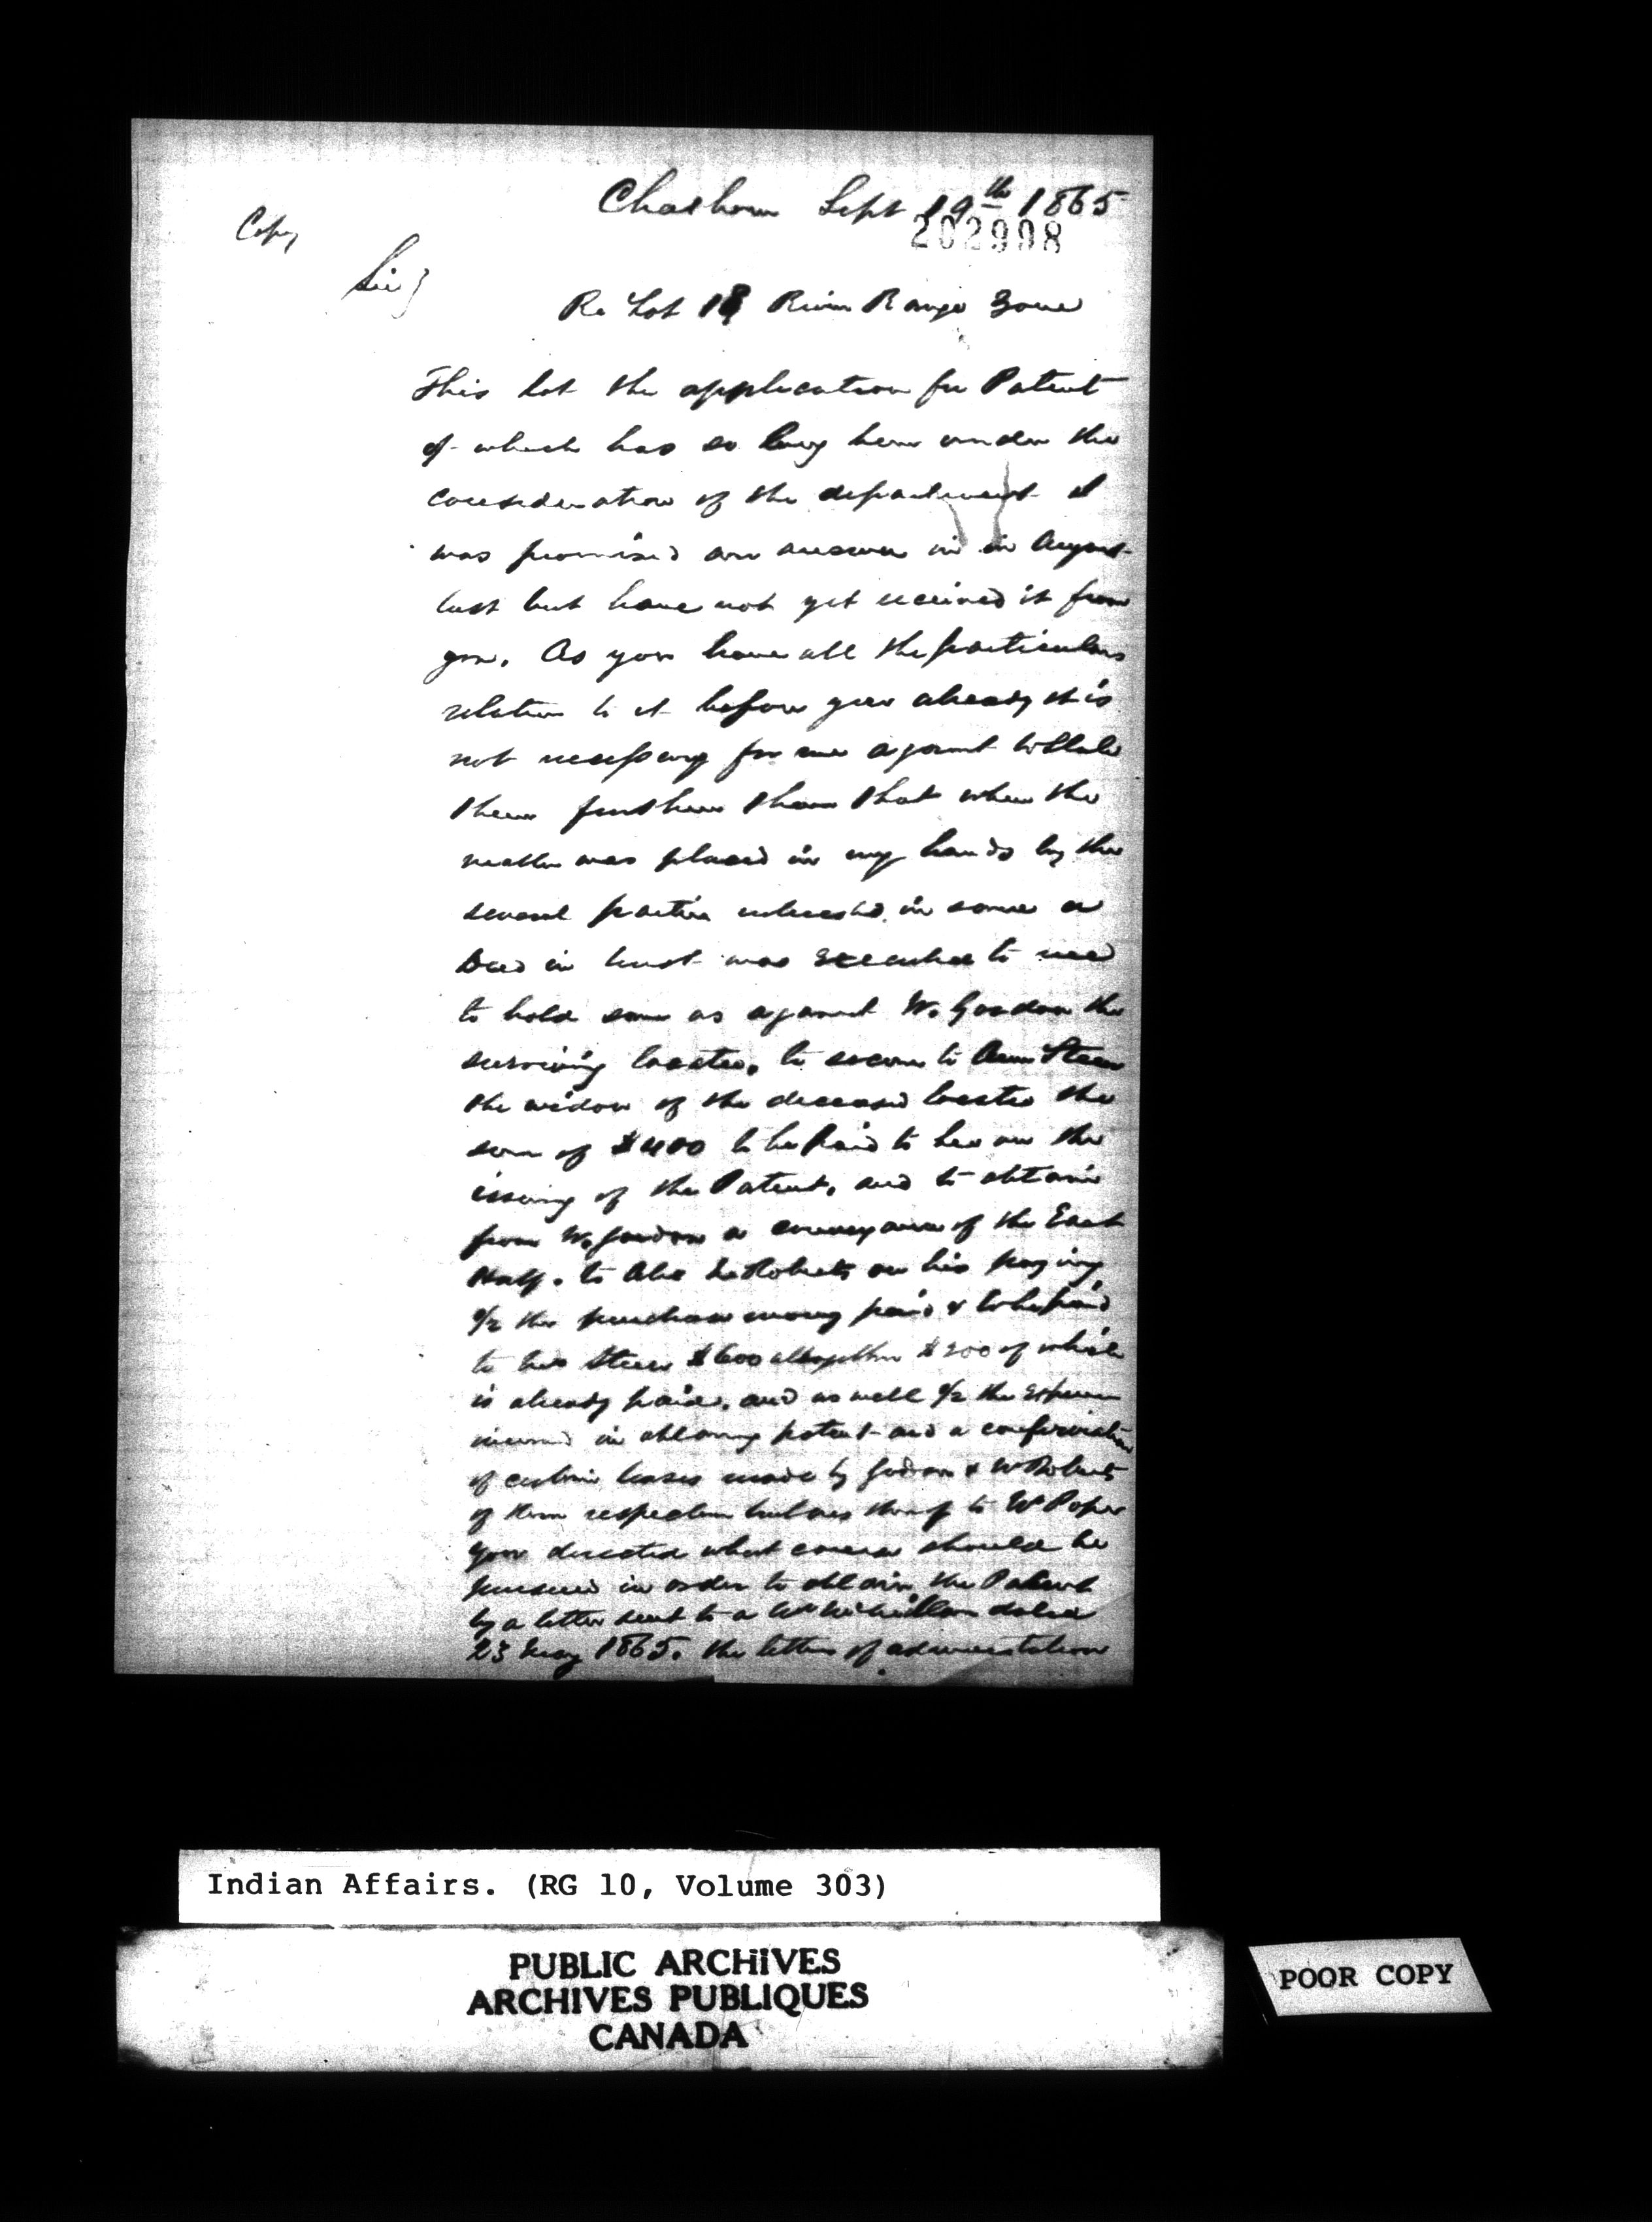 Chatham Sept 19th 1865
202998
Copy
Sir
Re Lot 18 River Range Zone
This lot the application for Patent
of which has so long been under the
consideration of the department I
was promised an answer in in August
last but have not yet received it from
you. As you have all the particulars
relative to it before you already it is
not necessary for me again to state
them further than that when the
matter was placed in my hands by the
several parties interested in same a
Deed in trust was executed to me
to hold same as against W. Gordon the
surviving locatee, to secure to Ann Steen
the widow of the deceased locatee the
sum of $400 to be paid to her on the
issuing of the Patent, and to obtain
from W. Gordon a conveyance of the East
Half. to on his paying
1/2 the purchase money paid & to be paid
to Steen $600 altogether $200 of which
is already paid, and as well 1/2 the expenses
incurred in obtaining patent and a confirmation
of certain leases made by Gordon & W Roberts
of their respective halves thereof to W Pope
you directed what course should be
pursued in order to obtain the Patent
by a letter sent to a dated
23 May 1865. the letters of administration
Indian Affairs. (RG 10, Volume 303)
PUBLIC ARCHIVES
ARCHIVES PUBLIQUES
CANADA
POOR COPY